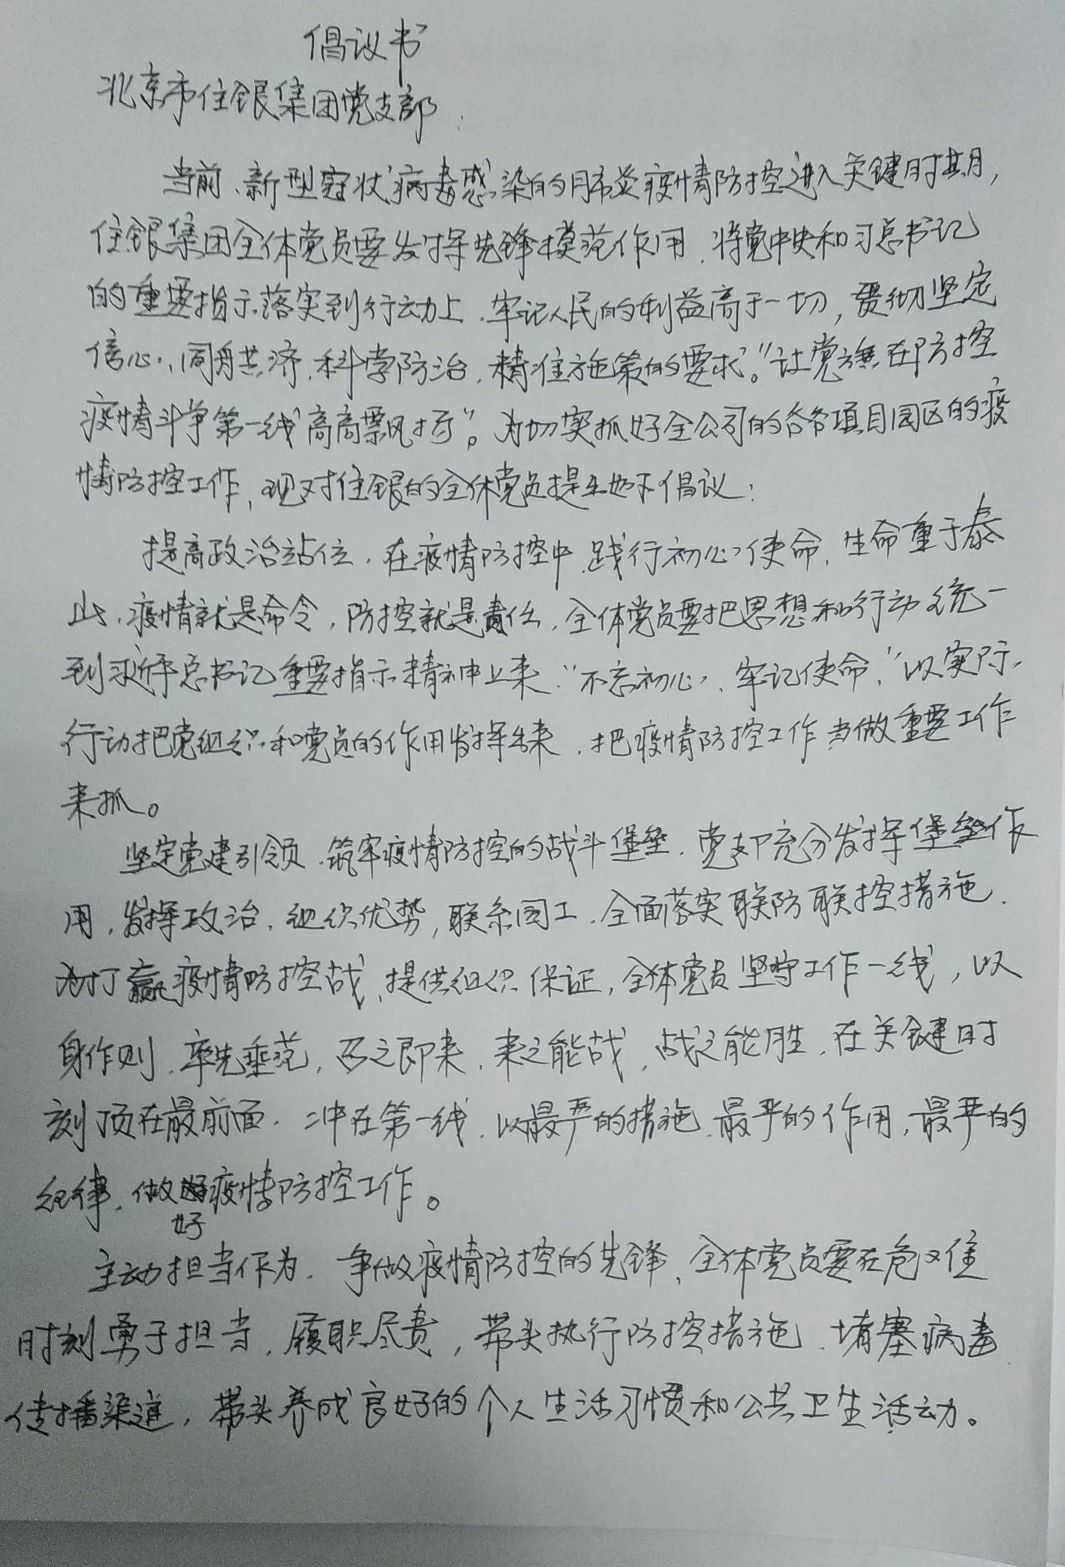 倡议书
北京市住银集团党支部：
当前、新型冠状病毒感染的肺炎疫情防控进入关键时期，
住银集团全体党员要发挥先锋模范作用，将党中央和习总书记
的重要指示落实到行动上，牢记人民的利益高于一切，贯彻坚定
信心，同舟共济，科学防治，精准施策的要求。“让党旗在防控
疫情斗争第一线高高飘扬”。为切实抓好全公司的各项目园区的疫
情防控工作，现对住银的全体党员提出如下倡议：
提高政治站位，在疫情防控中践行初心使命，生命重于泰
山，疫情就是命令，防控就是责任，全体党员要把思想和行动统一
到习近平总书记重要指示精神上来“不忘初心，牢记使命，”以实际
行动把党组织和党员的作用发挥出来，把疫情防控工作当做重要工作
来抓。
坚定党建引领，筑牢疫情防控的战斗堡垒，党支部充分发挥堡垒作
用，发挥政治，组织优势，联系园工，全面落实联防联控措施，
为打赢疫情防控战，提供组织保证，全体党员坚守工作一线，以
身作则，率先垂范，召之即来，来之能战，战之能胜，在关键时
刻顶在最前面，冲在第一线，以最严的措施，最严的作用，最严的
纪律，做好疫情防控工作。
主动担当作为，争做疫情防控的先锋，全体党员要在危难
时刻勇于担当，履职尽责，带头执行防控措施，堵塞病毒
传播渠道，带头养成良好的个人生活习惯和公共卫生活动。